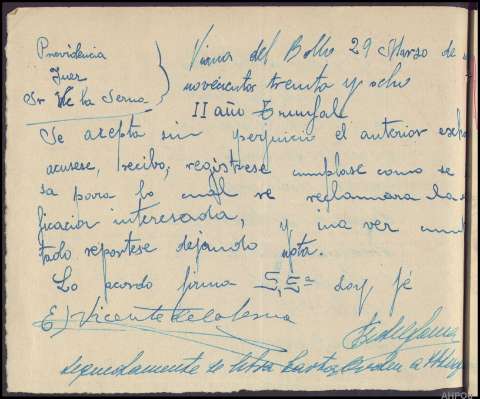 Providencia
Juez
Sr de la Serna
Viana del Bollo 29 Marzo de
novecientos treinta y ocho
II año Triunfal
Se acepta sin perjuicio el anterior exho
acusese, recibo, registrese cumplase como se
sa para lo cual se reglamara la
ficacion interesada, y una ver cum
tado reportese dejando nota.
Lo acordo firma S,Sª doy, fé
E) Vicente de la Serna
Seguidamente se libra carta orden a
AHPOU